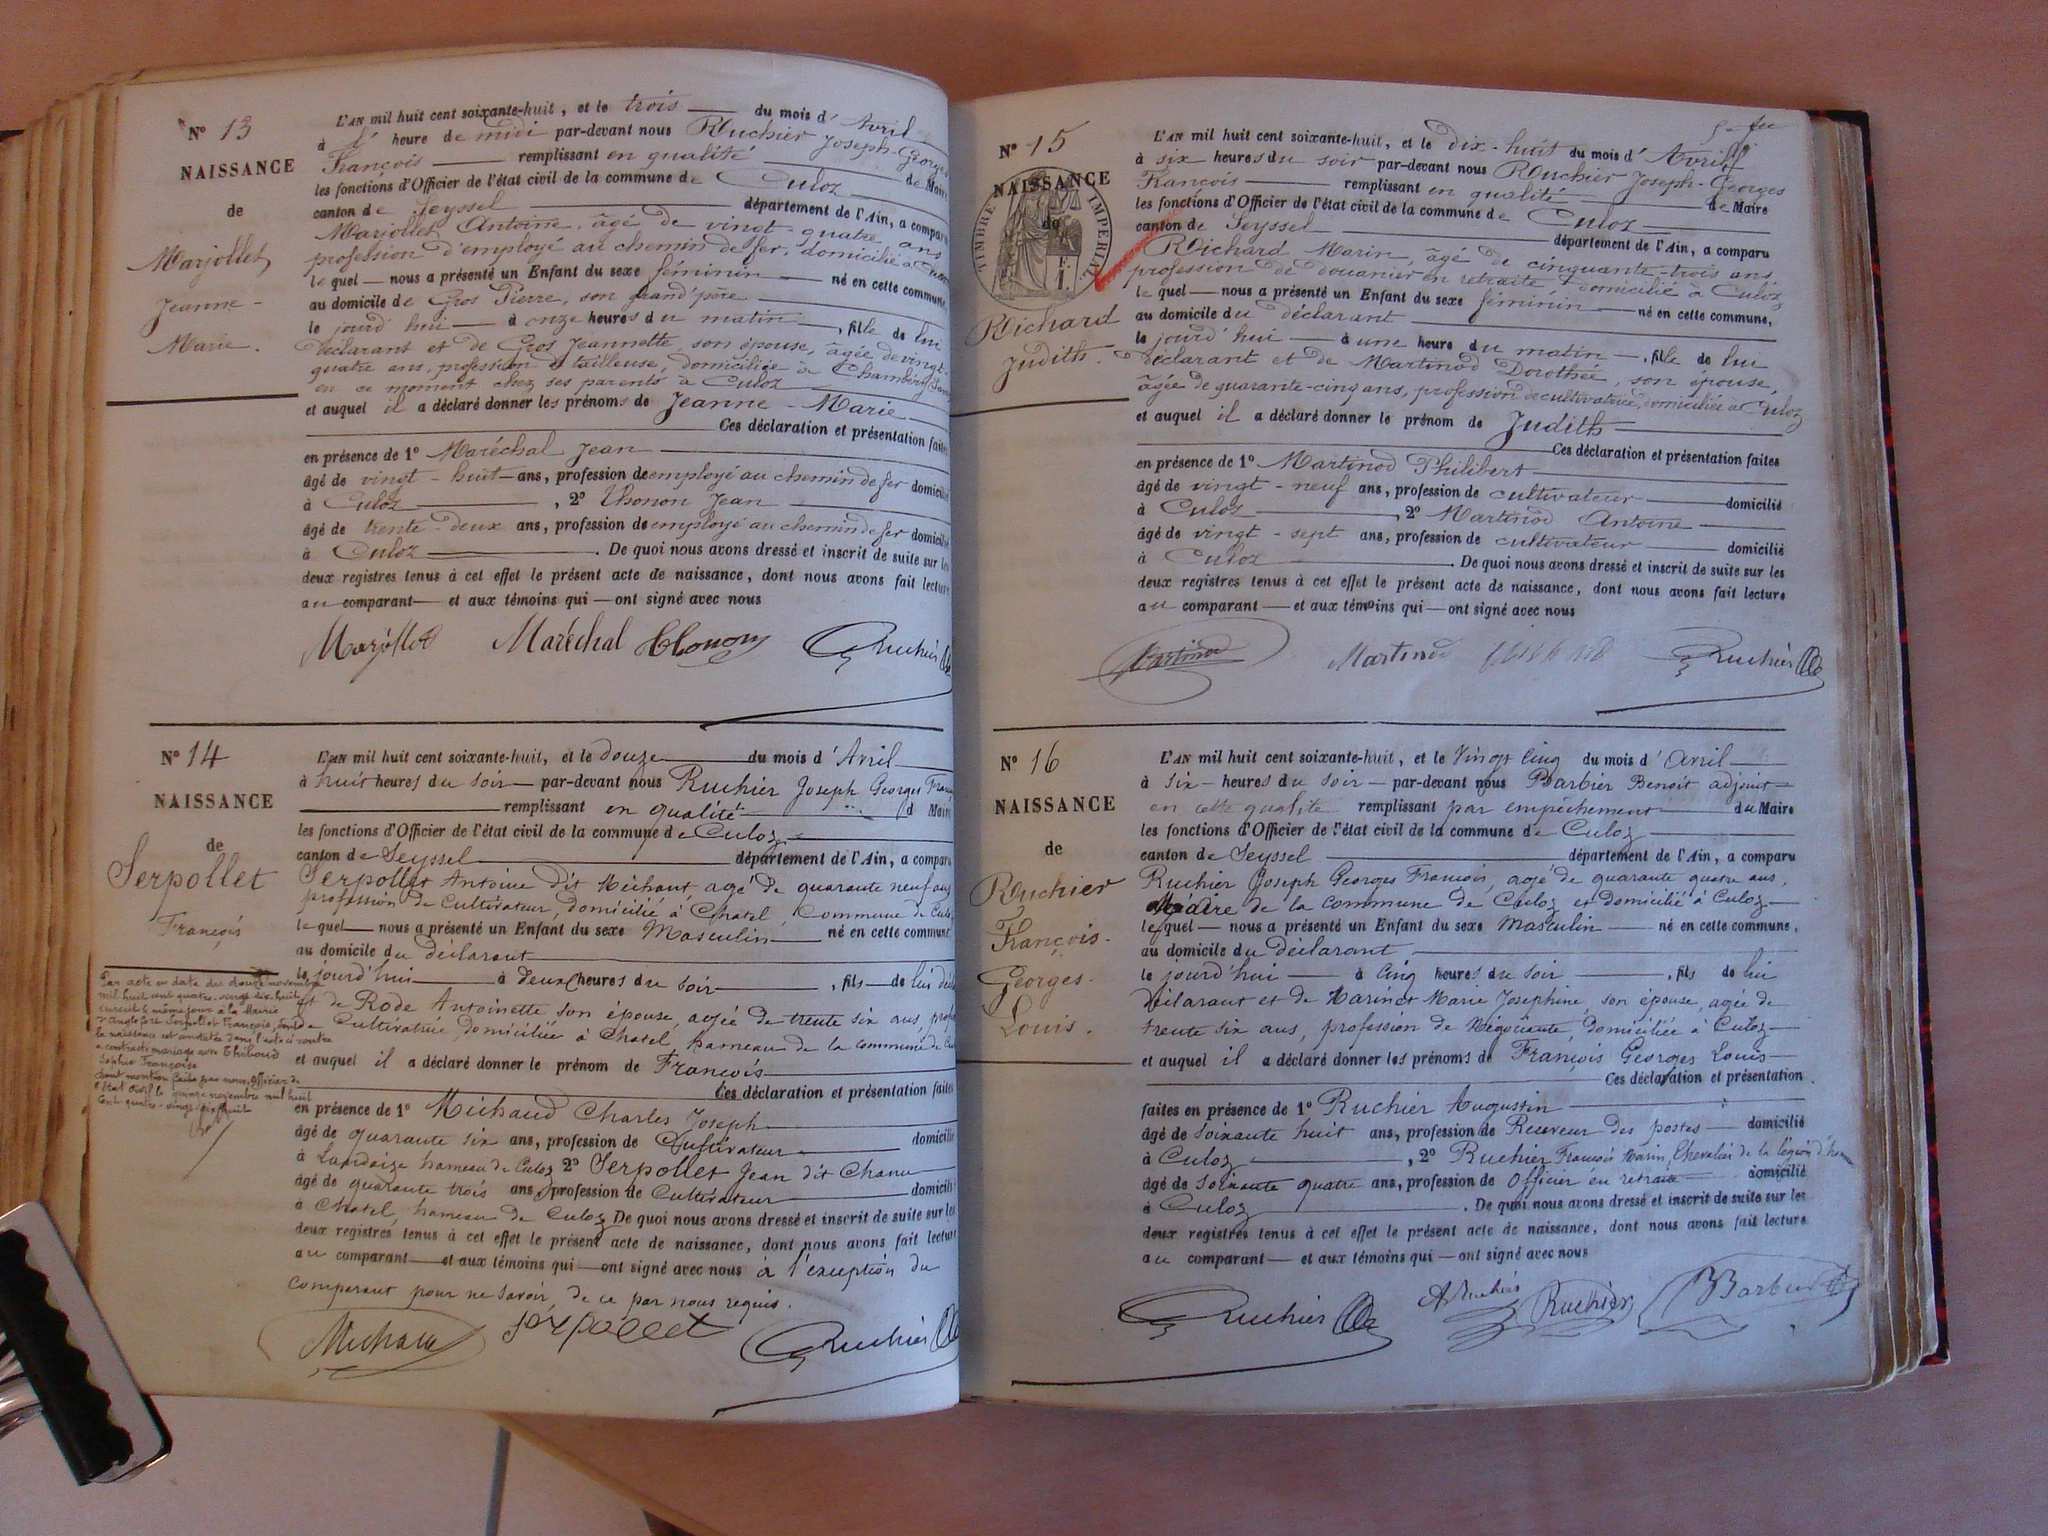 Nº 13
NAISSANCE
de
Marjollet
Jeanne-
Marie.
L'AN mil huit cent soixante-huit, et le trois du mois d'Avril
à l' heure de midi par-devant nous Ruchier Joseph-Georges
François remplissant en qualité de Maire
les fonctions d'Officier de l'état civil de la commune de Culoz
canton de Seyssel département de l'Ain, a comparu
Marjollet Antoine, âgé de vingt-quatre ans
profession d'employé au chemin de fer, domicilié à Culoz
le quel nous a présenté un Enfant du sexe féminin né en cette commune
au domicile de Gros Pierre, son grand'père
le jourd'hui à onze heures du matin, fille de lui
déclarant et de Gros Jeannette, son épouse, âgée de vingt-
quatre ans, profession de tailleuse, domiciliée à Chambéry
en ce moment chez ses parents à Culoz
et auquel il a déclaré donner les prénoms de Jeanne-Marie
Ces déclaration et présentation faites
en présence de 1º Maréchal Jean
âgé de vingt-huit ans, profession de employé au chemin de fer domicilié
à Culoz, 2º Thonon Jean
âgé de trente-deux ans, profession de employé au chemin de fer domicilié
à Culoz. De quoi nous avons dressé et inscrit de suite sur les
deux registres tenus à cet effet le présent acte de naissance, dont nous avons fait lecture
au comparant et aux témoins qui ont signé avec nous
Marjollet Maréchal Thonon Ruchier
Nº 14
NAISSANCE
de
Serpollet
François
L'AN mil huit cent soixante-huit, et le douze du mois d'Avril
à huit heures du soir par-devant nous Ruchier Joseph Georges
remplissant en qualité d Maire
les fonctions d'Officier de l'état civil de la commune de Culoz
canton de Seyssel département de l'Ain, a comparu
Serpollet Antoine dit Michaut, agé de quarante neuf ans
profession de Cultivateur, domicilié à Chatel, Commune de Culoz
le quel nous a présenté un Enfant du sexe Masculin né en cette commune
au domicile du déclarant
le jourd'hui à Deux heures du soir, fils de lui
et de Rode Antoinette son épouse, agée de trente six ans,
Cultivatrice, domiciliée à Chatel, hameau de la commune de
et auquel il a déclaré donner le prénom de François
Ces déclaration et présentation faites
en présence de 1º Michaud Charles Joseph
âgé de quarante six ans, profession de Cultivateur domicilié
à hameau de Culoz 2º Serpollet Jean dit
âgé de quarante trois ans profession de Cultivateur domicilié
à Chatel, hameau de Culoz De quoi nous avons dressé et inscrit de suite sur les
deux registres tenus à cet effet le présent acte de naissance, dont nous avons fait lecture
au comparant et aux témoins qui ont signé avec nous à l'exception du
comparant pour ne savoir, de ce par nous requis.
Par acte en date du douze novembre
mil huit cent quatre-vingt dix-huit
inscrit le même jour à la Mairie
d'Anglefort Serpollet François, dont
la naissance est constatée dans l'acte ci contre
a contracté mariage avec Thiboud
Sophie Françoise
dont mention faite par nous, Officier de
l'Etat civil le quinze novembre mil huit
cent quatre-vingt dix huit
Michaud Serpollet Ruchier
Nº 15
NAISSANCE
de
TIMBRE IMPERIAL
Richard
Judith.
L'AN mil huit cent soixante-huit, et le dix-huit du mois d'Avril
à six heures du soir par-devant nous Ruchier Joseph-Georges
François remplissant en qualité de Maire
les fonctions d'Officier de l'état civil de la commune de Culoz
canton de Seyssel département de l'Ain, a comparu
Richard Marin, âgé de cinquante-trois ans,
profession de douanier en retraite domicilié à Culoz
le quel nous a présenté un Enfant du sexe féminin né en cette commune,
au domicile du déclarant
le jourd'hui à une heure du matin, fille de lui
déclarant et de Martinod Dorothée, son épouse,
âgée de quarante-cinq ans, profession de cultivatrice, domiciliée à Culoz
et auquel il a déclaré donner le prénom de Judith
Ces déclaration et présentation faites
en présence de 1º Martinod Philibert
âgé de vingt-neuf ans, profession de cultivateur domicilié
à Culoz, 2º Martinod Antoine
âgé de vingt-sept ans, profession de cultivateur domicilié
à Culoz. De quoi nous avons dressé et inscrit de suite sur les
deux registres tenus à cet effet le présent acte de naissance, dont nous avons fait lecture
au comparant et aux témoins qui ont signé avec nous
Martinod Martinod Ruchier
Nº 16
NAISSANCE
de
Ruchier
François-
Georges-
Louis.
L'AN mil huit cent soixante-huit, et le Vingt Cinq du mois d'Avril
à six heures du soir par-devant nous Barbier Benoit adjoint
en cette qualité remplissant par empêchement du Maire
les fonctions d'Officier de l'état civil de la commune de Culoz
canton de Seyssel département de l'Ain, a comparu
Ruchier Joseph Georges François, agé de quarante quatre ans,
Maire de la commune de Culoz et domicilié à Culoz
le quel nous a présenté un Enfant du sexe Masculin né en cette commune,
au domicile du déclarant
le jourd'hui à Cinq heures du soir, fils de lui
déclarant et de Marinet Marie Josephine, son épouse, agée de
trente six ans, profession de Négociante, domiciliée à Culoz
et auquel il a déclaré donner les prénoms de François Georges Louis
Ces déclaration et présentation
faites en présence de 1º Ruchier Augustin
âgé de soixante huit ans, profession de Receveur des postes domicilié
à Culoz, 2º Ruchier François Marin, Chevalier de la légion d'
âgé de soixante quatre ans, profession de Officier en retraite domicilié
à Culoz. De quoi nous avons dressé et inscrit de suite sur les
deux registres tenus à cet effet le présent acte de naissance, dont nous avons fait lecture
au comparant et aux témoins qui ont signé avec nous
Ruchier A Ruchier Ruchier Barbier